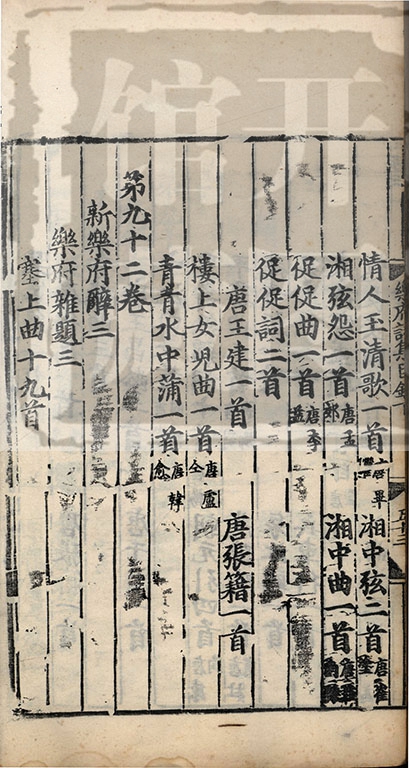 樂府詩集目錄
情人王清歌一首 唐畢 湘中弦二首 唐崔塗
湘弦怨一首 唐孟郊 湘中曲一首
促促曲一首 唐李益
促促詞二首
唐王建一首 唐張籍一首
樓上女兒曲一首 唐盧仝
青青水中蒲一首 唐韓愈
第九十二卷
新樂府辭三
樂府雜題三
塞上曲十九首
开
馆